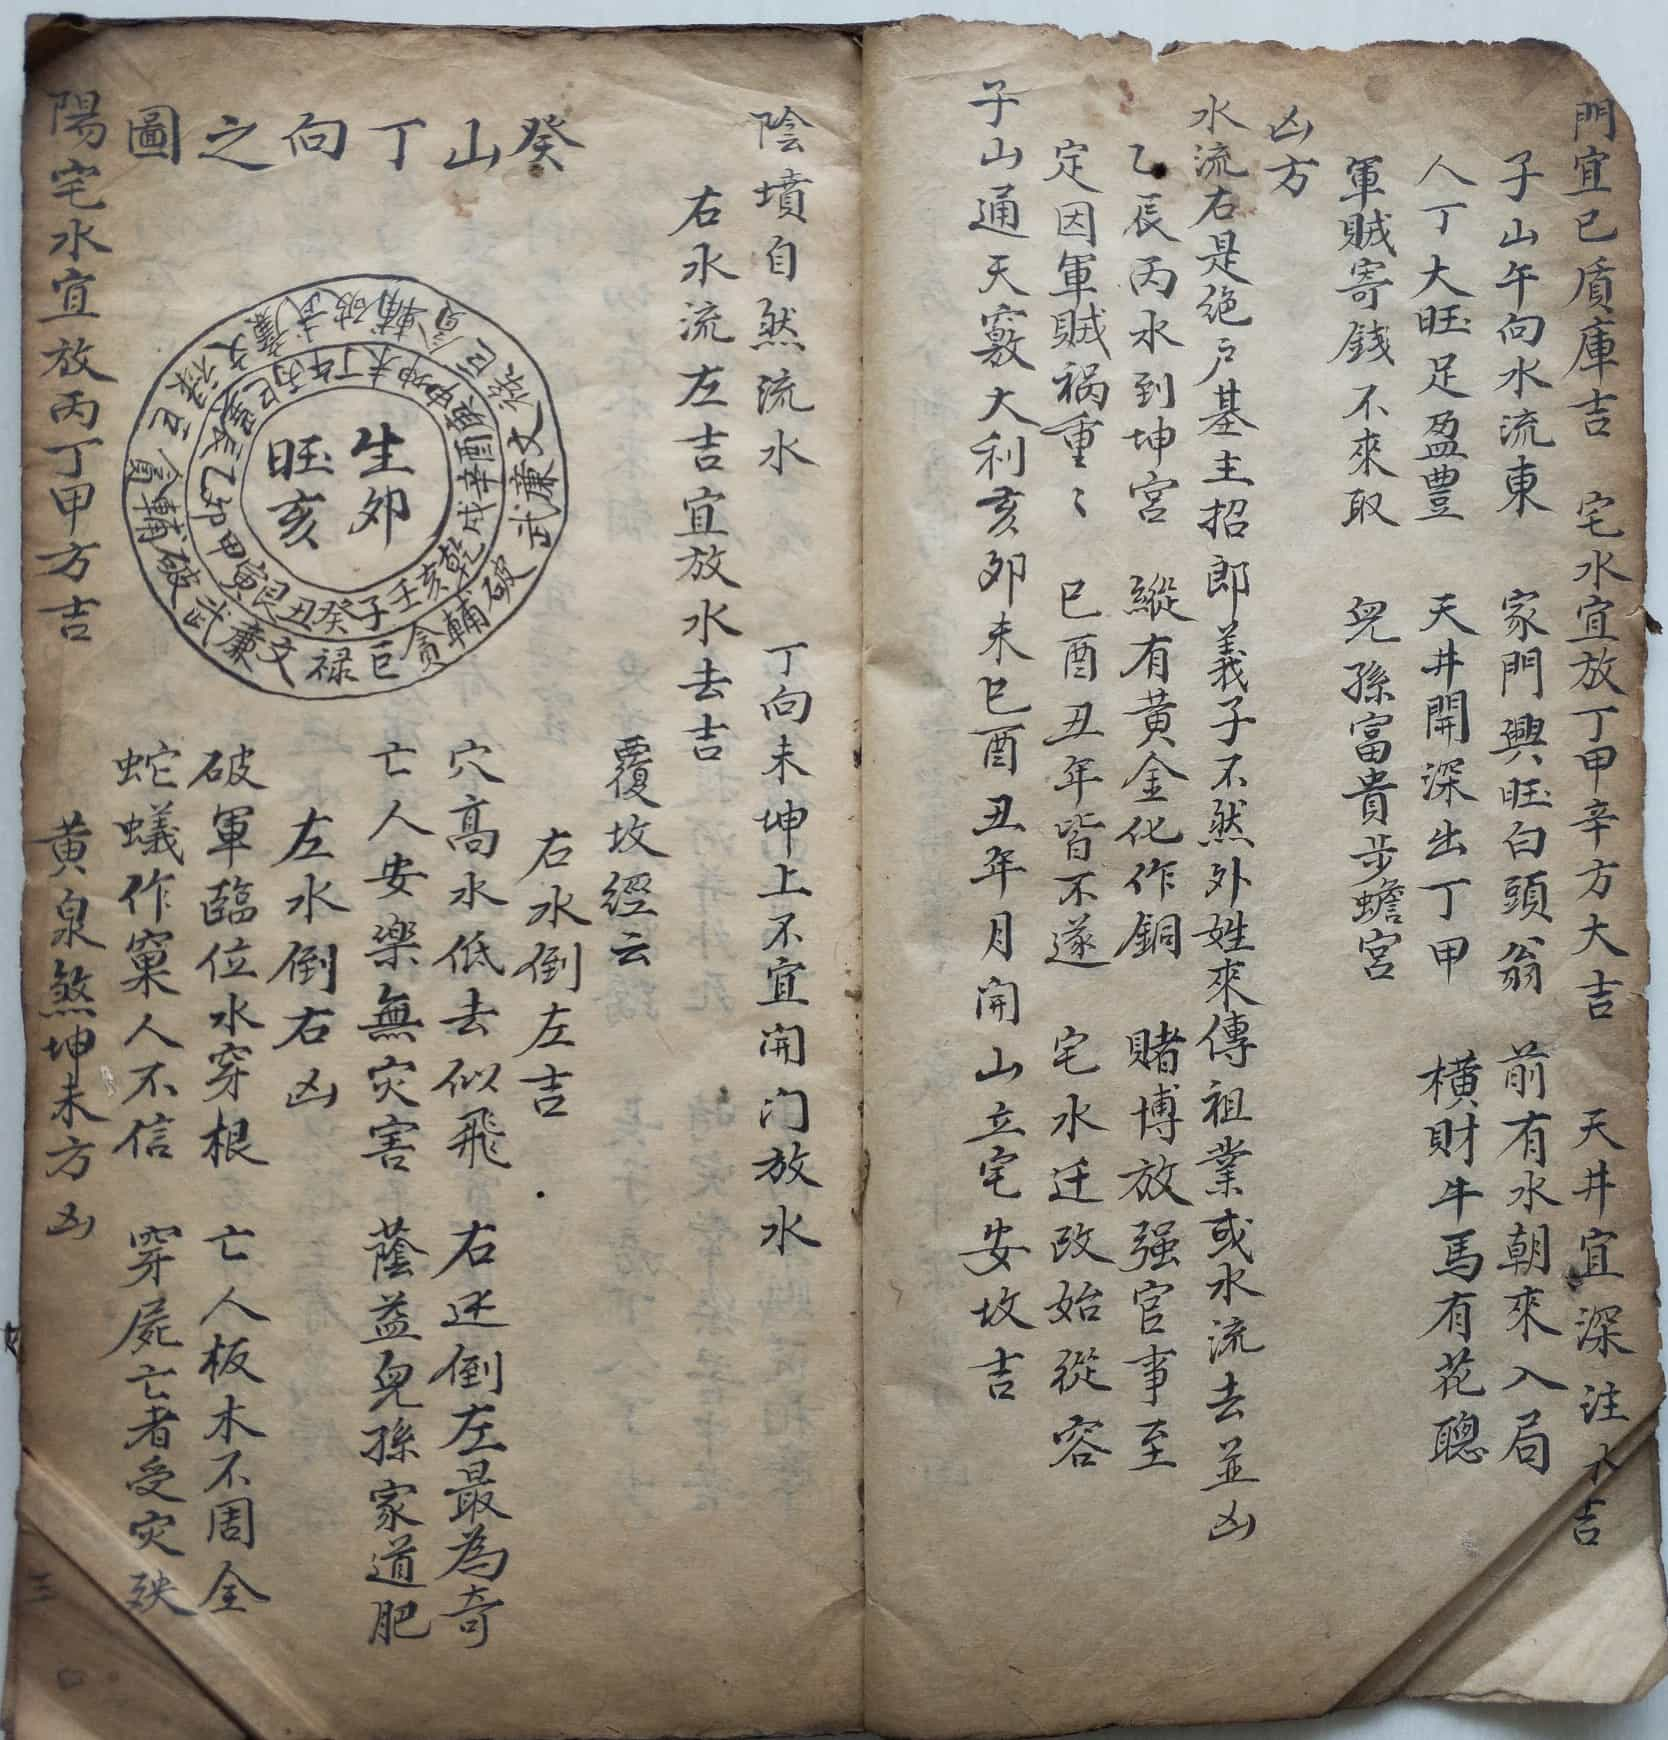 門宜巳質庫吉　宅水宜放丁甲辛方大吉　天井宜深注水吉
子山午向水流東　家門興旺白頭翁　前有水朝來入局
人丁大旺足盈豐　天井開深出丁甲　橫財牛馬有花聰
軍賊寄錢不來取　兒孫富貴步蟾宮
凶方
水流右是绝户基主招郎義子不然外姓來傳祖業或水流去並凶
乙辰丙水到坤宮　縱有黃金化作銅　賭博放强官事至
定因軍賊祸重〻　巳酉丑年皆不遂　宅水迁改始從容
子山通天竅大利亥夘未巳酉丑年月開山立宅安坟吉
陰墳自然流水　丁向未坤上不宜開门放水
右水流左吉宜放水去吉
覆坟經云
右水倒左吉
穴高水低去似飛　右迊倒左最為奇
亡人安樂無灾害　蔭益兒孫家道肥
左水倒右凶
破軍臨位水穿根　亡人板木不周全
蛇蟻作窠人不信　穿屍亡者受灾殃
癸山丁向之圖
生夘
旺亥
壬子癸丑艮寅甲夘乙辰巽巳丙午丁未坤申庚酉辛戌乾亥
巨禄文廉武破輔貪巨禄文廉武破輔貪巨禄文廉武破輔貪
陽宅水宜放丙丁甲方吉　黄泉煞坤未方凶